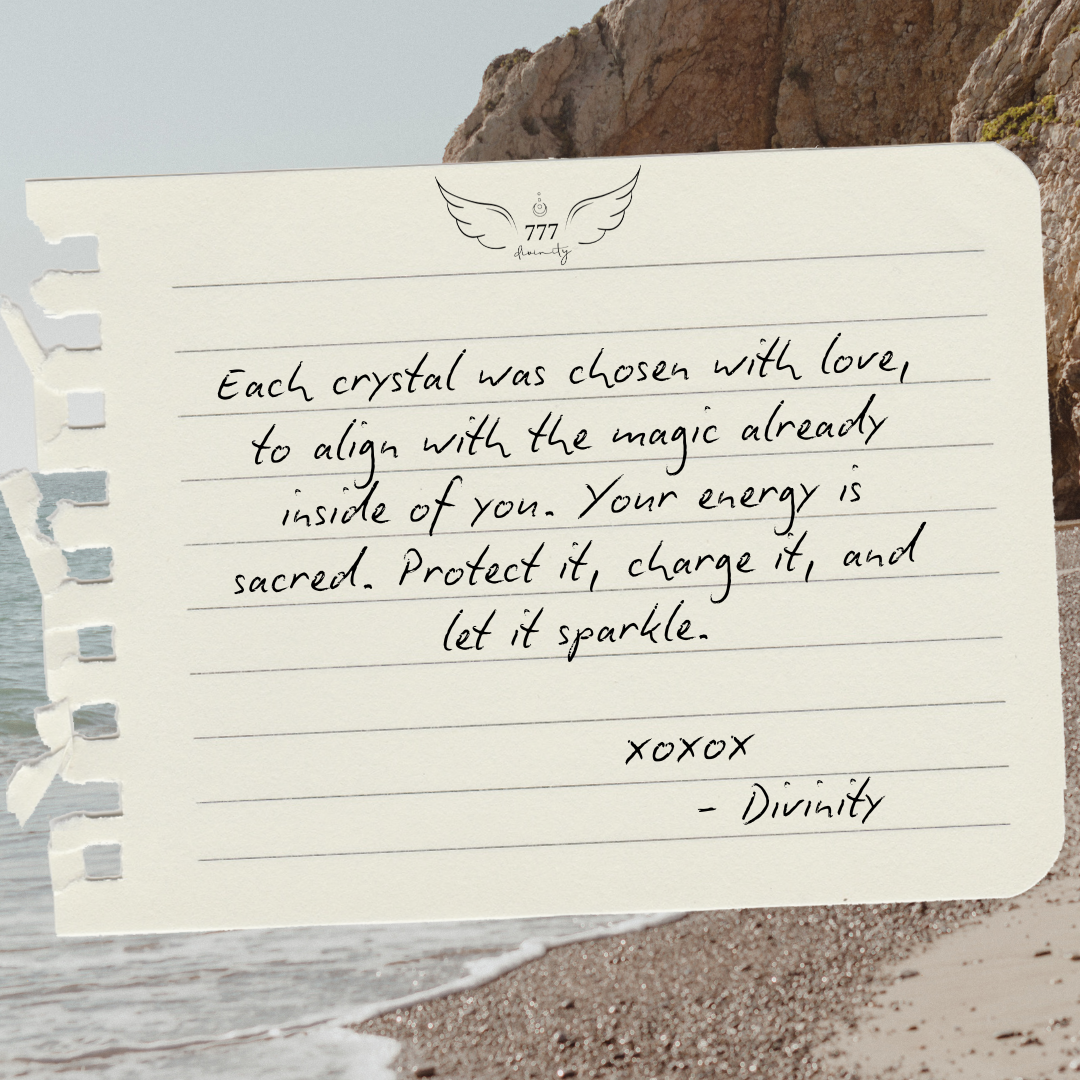 777
divinity
Each crystal was chosen with love,
to align with the magic already
inside of you. Your energy is
sacred. Protect it, charge it, and
let it sparkle.
xoxox
- Divinity